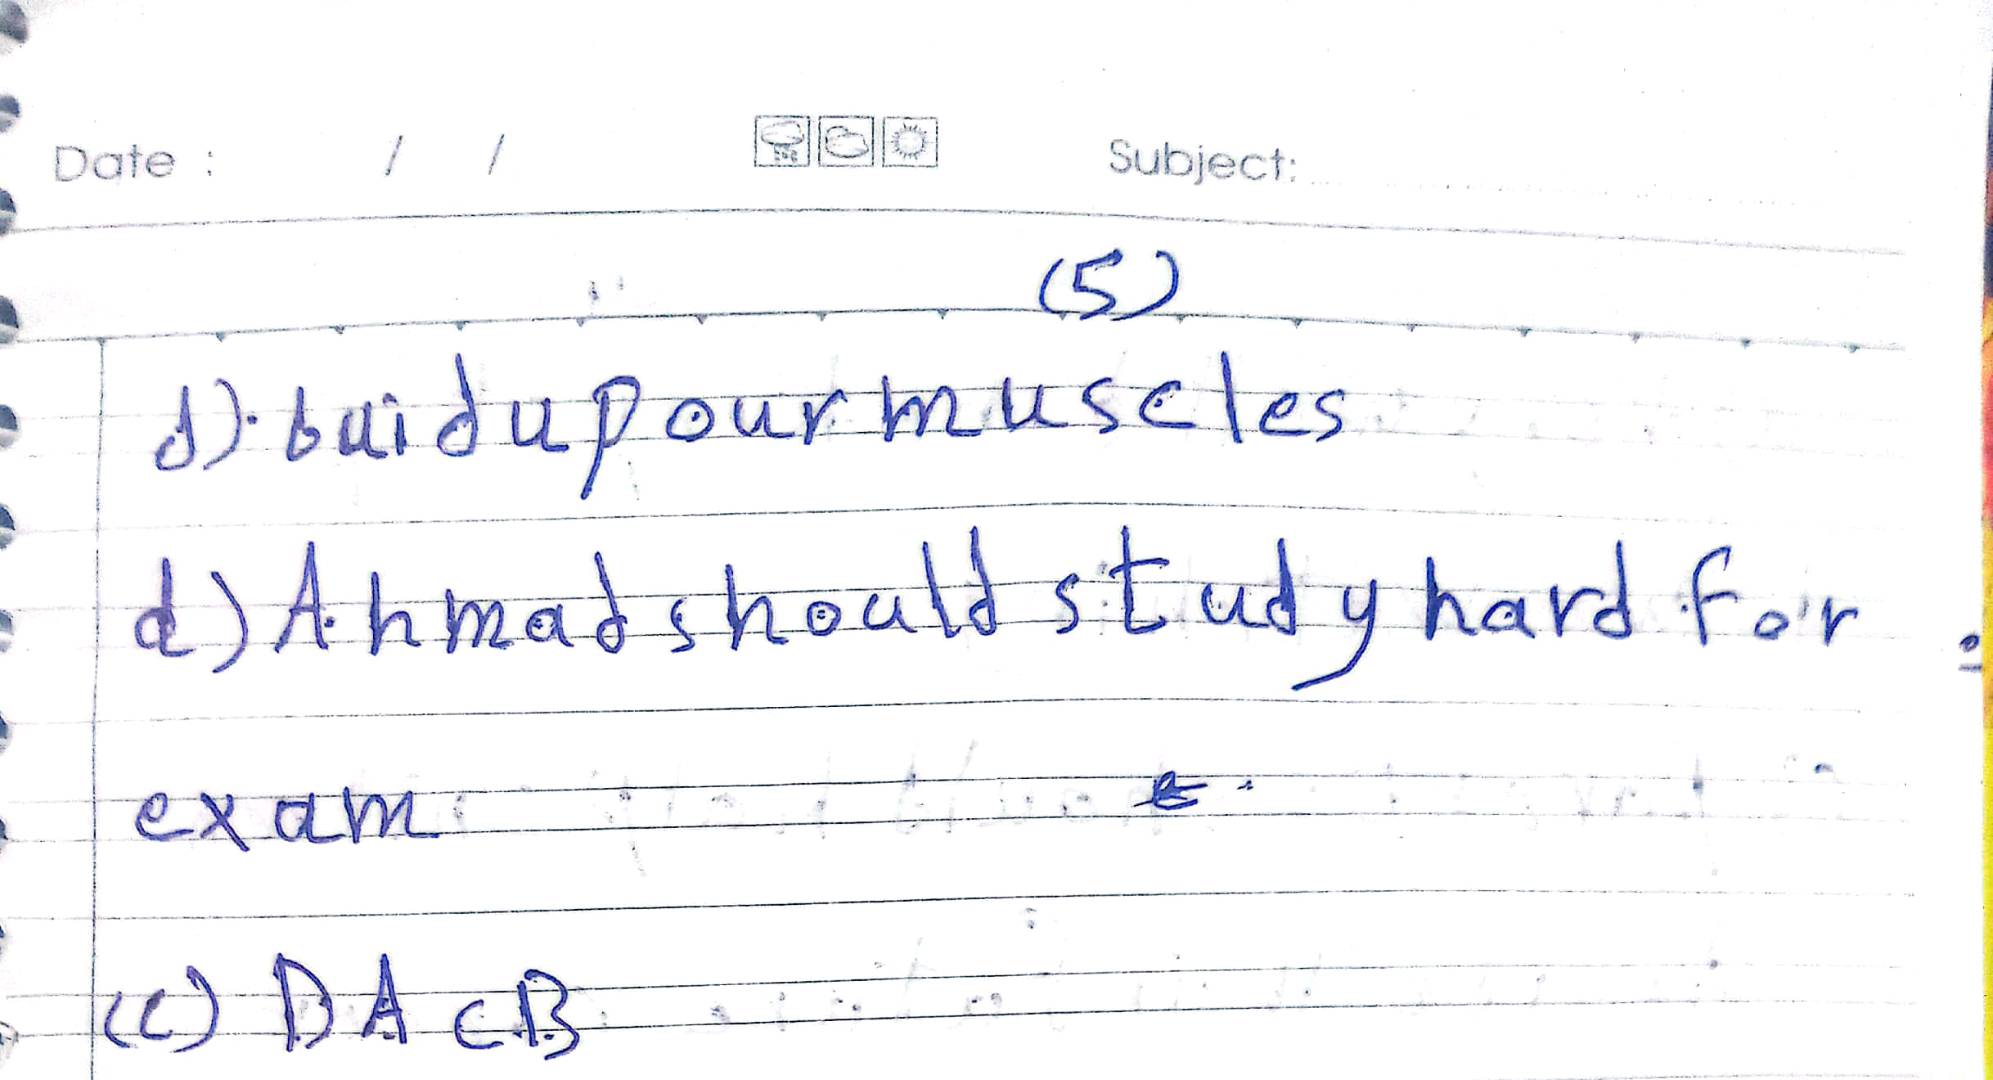 Date : / / Subject:
(5)
d). buid up our muscles
d) Ahmad should study hard for
exam
(c) DACB